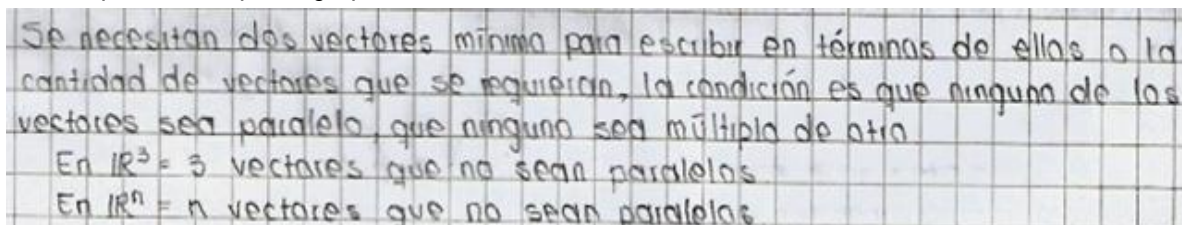 Se necesitan dos vectores mínimo para escribir en términos de ellos a la
cantidad de vectores que se requieran, la condición es que ninguno de los
vectores sea paralelo, que ninguno sea múltiplo de otro
En IR³ = 3 vectores que no sean paralelos
En IRⁿ = n vectores que no sean paralelos